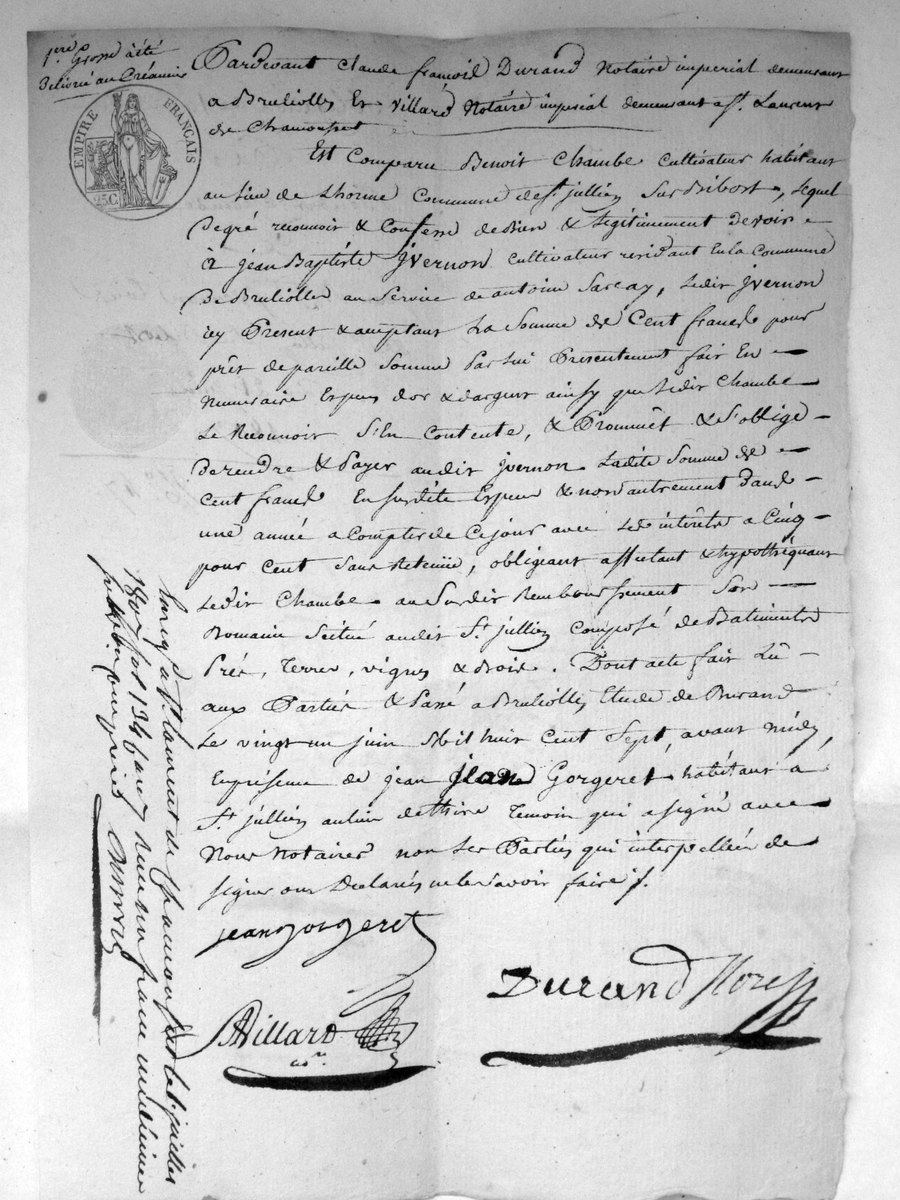 1ère Grosse a été
Délivrée au Créancier
EMPIRE FRANÇAIS
25 C.
Pardevant Claude françois Durand Notaire imperial demeurant
a Brulioles Et Villard Notaire imperial demeurant a St. Laurent
de Chamousset
Est Comparu Benoit Chambe Cultivateur habitant
au lieu de Lhorme Commune de St jullien Sur Bibost, Lequel
De gré reconnoit & Confesse de Bien & Légitimement Devoir
à jean Baptiste jvernon Cultivateur residant En la Commune
De Brulioles au Service de antoine Sarcay, Ledit jvernon
icy Present & acceptant La Somme de Cent francs pour
prêt de pareille Somme Par lui Presentement fait En
Numeraire Especes dor & dargent ainsy que Ledit Chambe
Le Reconnoit S'En Contente, & Prommêt & S'oblige
De rendre & Payer audit jvernon Ladite Somme de
Cent francs En Susdite Espece & non autrement Dans
une année a Compter de Ce jour avec Les intérêts a Cinq
pour Cent Sans Retenüe, obligeant affectant & hypothéquant
Ledit Chambe au Susdit Remboursement Son
Domaine Scitué audit St jullien Composé de Batiments
Prés, Terres, vignes & Bois. Dont acte fait Lû
aux Parties & Passé a Brulioles Etude de Durand
Le vingt un juin Mil huit Cent Sept, avant midy,
En présence de jean Gorgeret habitant à
St jullien au lieu de Temoin qui a signé avec
Nous Notaires non Les Parties qui interpellées de
signer ont Déclarés ne le Savoir faire
jean gorgeret
Villard
nre
Durand Nore
a St. Laurent de Chamousset le juillet
1807 fol 134 reçu un franc